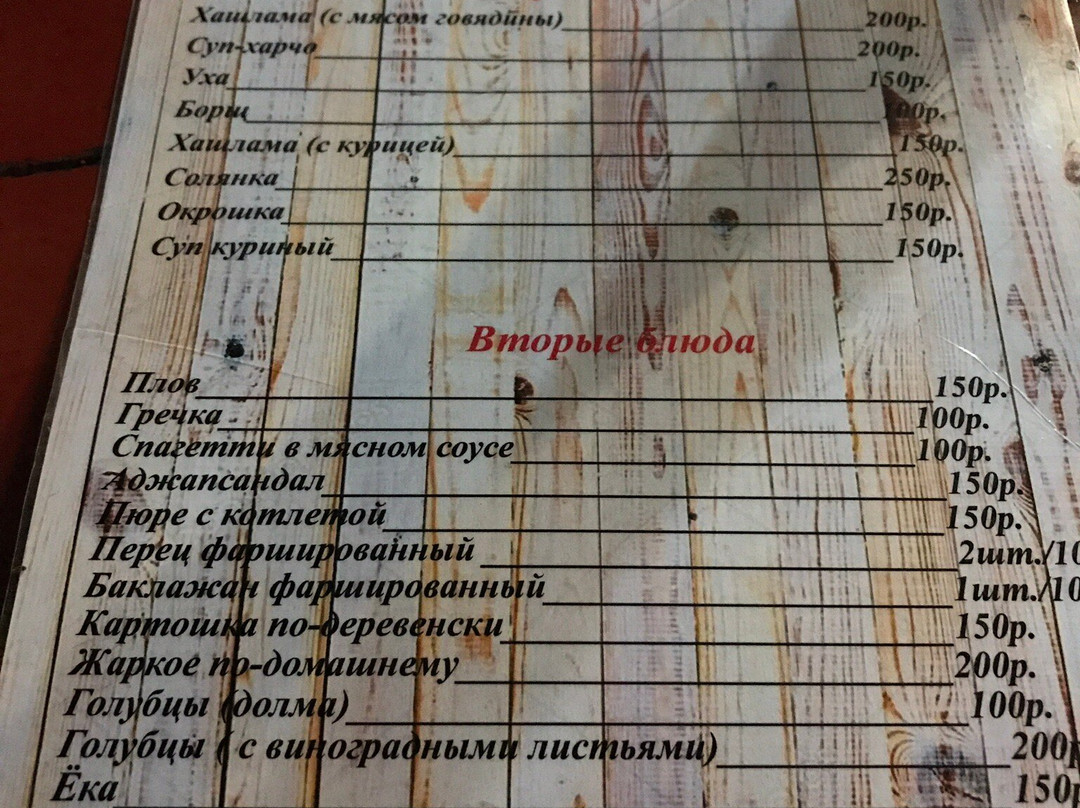 Хашлама (с мясом говядины) 200р.
Суп-харчо 200р.
Уха 150р.
Борщ
Хашлама (с курицей) 150р.
Солянка 250р.
Окрошка 150р.
Суп куриный 150р.
Вторые блюда
Плов 150р.
Гречка 100р.
Спагетти в мясном соусе 100р.
Аджапсандал 150р.
Пюре с котлетой 150р.
Перец фаршированный 2шт./10
Баклажан фаршированный 1шт./10
Картошка по-деревенски 150р.
Жаркое по-домашнему 200р.
Голубцы (долма) 100р.
Голубцы ( с виноградными листьями) 200р
Ёка 150р